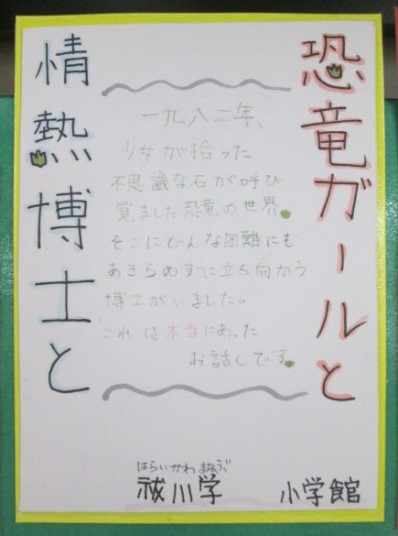 恐竜ガールと
情熱博士と
一九八二年、
少女が拾った
不思議な石が呼び
覚ました恐竜の世界。
そこにどんな困難にも
あきらめずに立ち向かう
博士がいました。
これは本当にあった
お話しです。
はらいかわまなぶ
祓川学
小学館